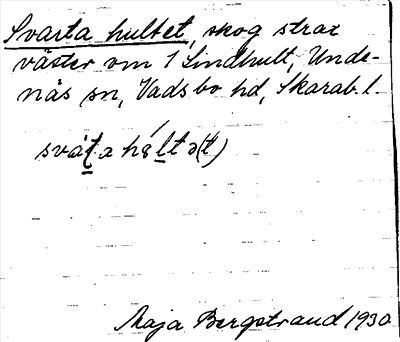 Svarta hultet, skog strax
väster om 1 Lindhult, Unde-
näs sn, Vadsbo hd, Skarab. l.
Maja Bergstrand 1930